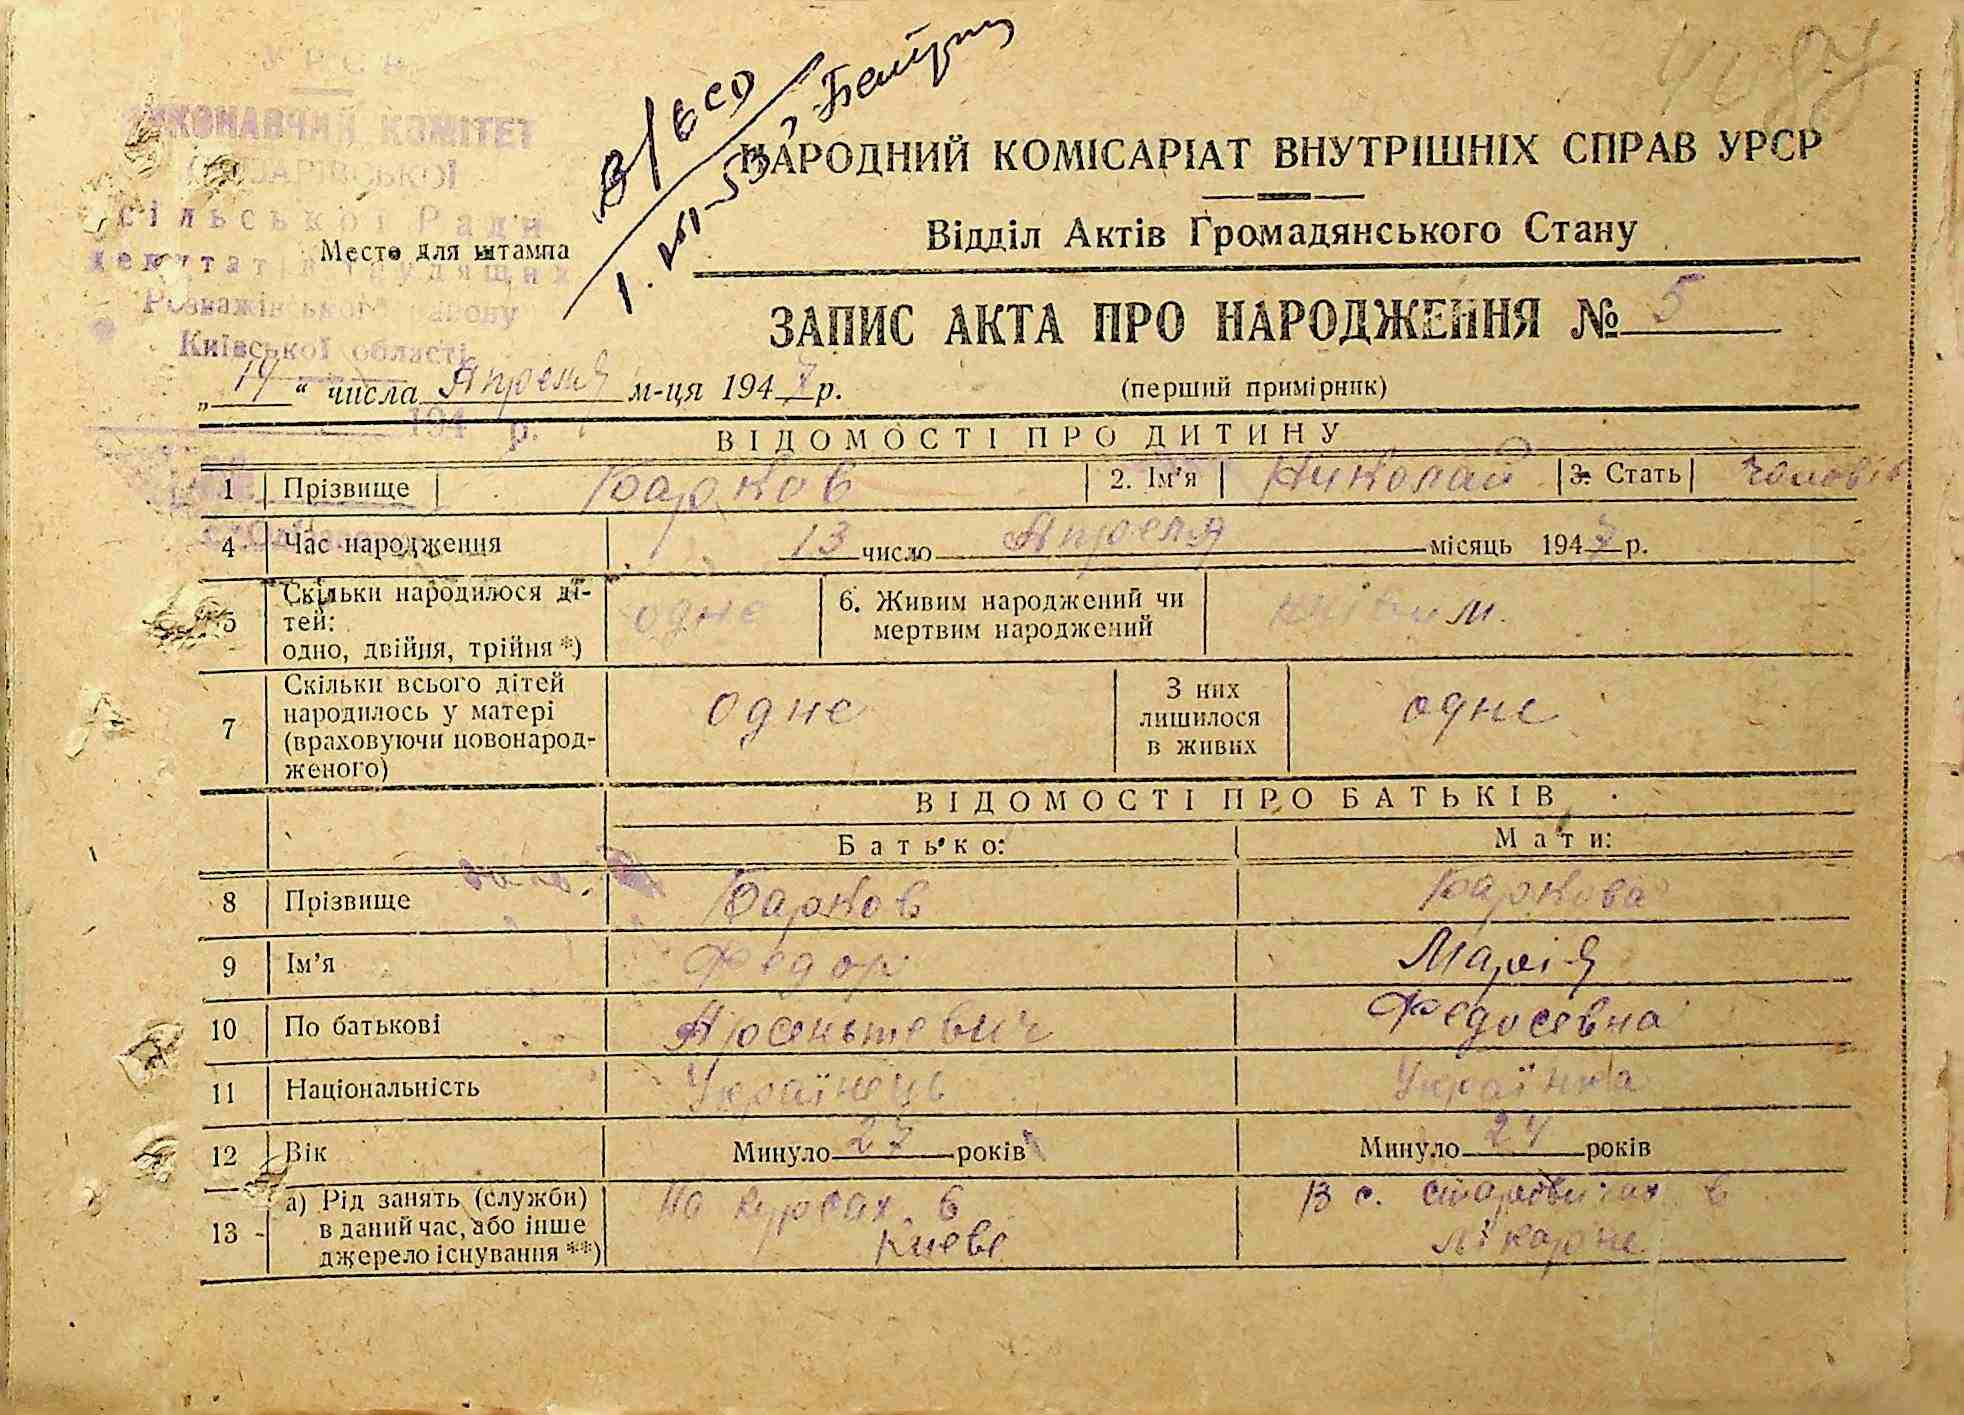 УРСР
ВИКОНАВЧИЙ КОМІТЕТ
сільської Ради
депутатів трудящих
Розважівського району
Київської області
194 р.
Место для штампа
НАРОДНИЙ КОМІСАРІАТ ВНУТРІШНІХ СПРАВ УРСР
Відділ Актів Громадянського Стану
ЗАПИС АКТА ПРО НАРОДЖЕННЯ № 5
„14“ числа Апреля м-ця 1947 р.
(перший примірник)
ВІДОМОСТІ ПРО ДИТИНУ
1 Прізвище Барков 2. Ім'я Николай 3. Стать Чоловів
4 Час народження 13 число Апреля місяць 1947 р.
5 Скільки народилося ді-
тей:
одно, двійня, трійня *) одне
6. Живим народжений чи
мертвим народжений живим.
7 Скільки всього дітей
народилось у матері
(враховуючи новонарод-
женого) одне
З них
лишилося
в живих одне
ВІДОМОСТІ ПРО БАТЬКІВ
Батько: Мати:
8 Прізвище Барков Баркова
9 Ім'я Федор Марія
10 По батькові Арсентьевич Федосевна
11 Національність Українець Українка
12 Вік Минуло 27 років Минуло 24 років
13 а) Рід занять (служби)
в даний час, або інше
джерело існування **)
На курсах в
Києве
В с. Старовичах в
лікарне